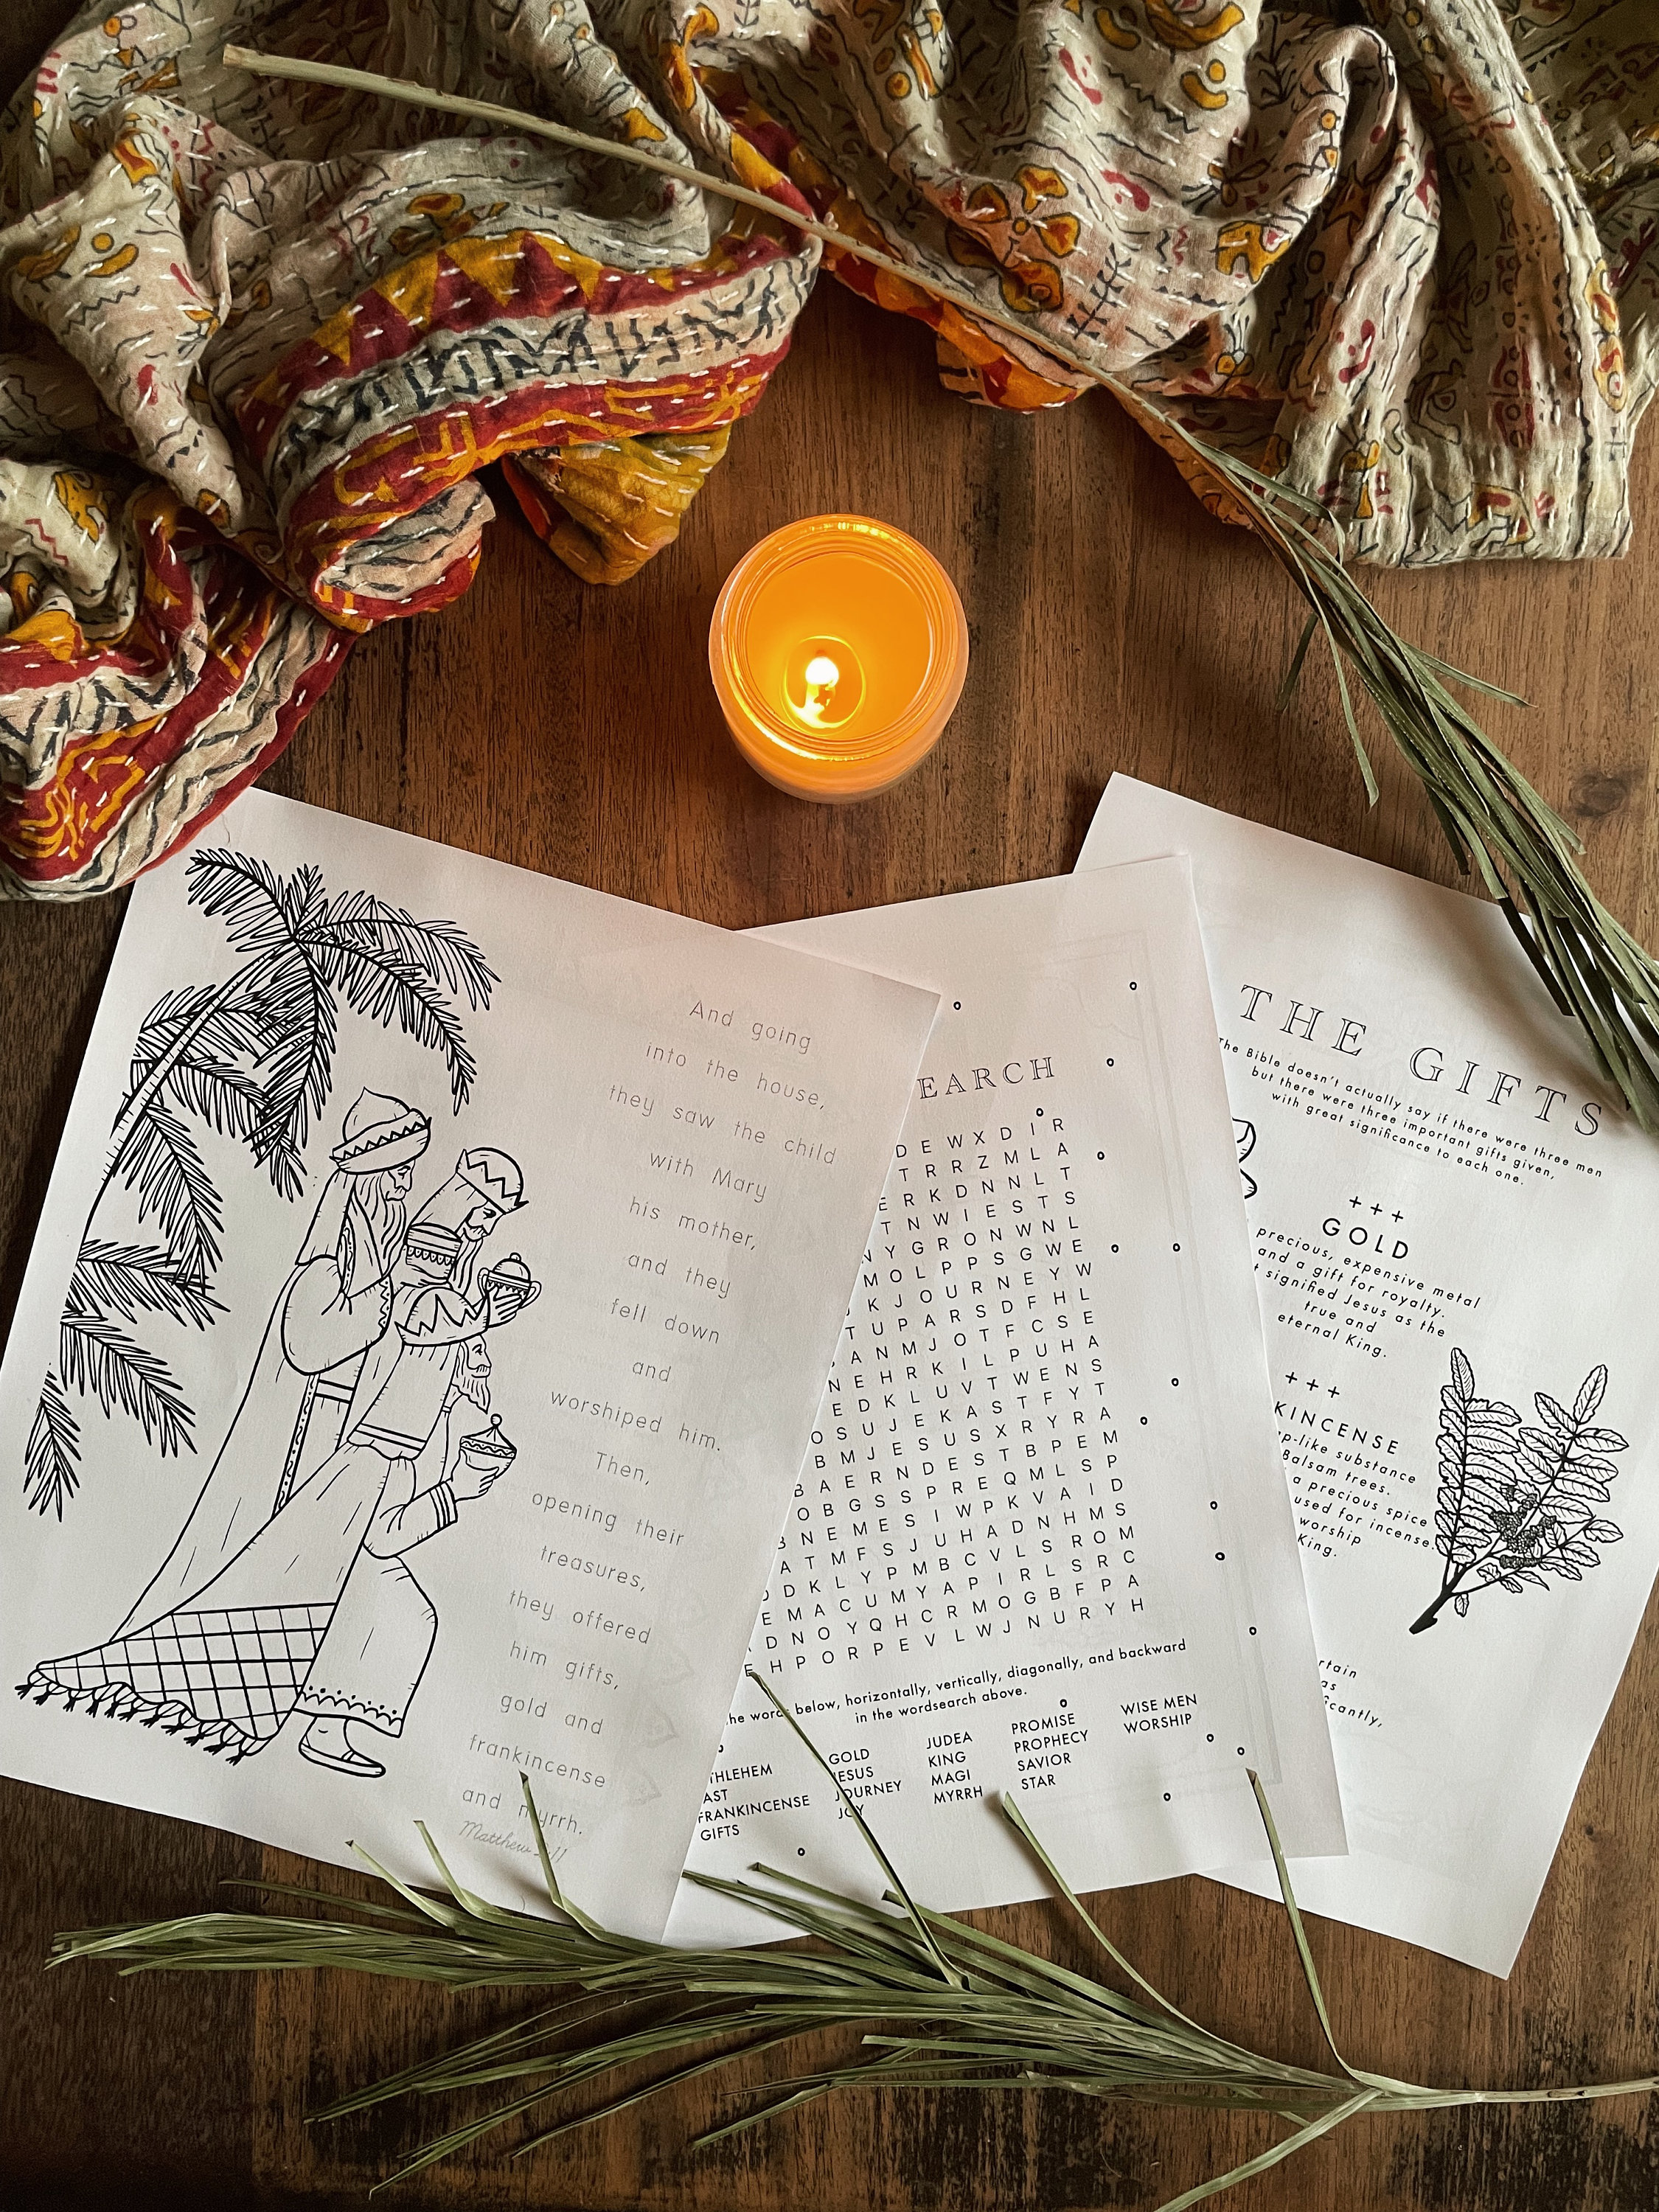 And going
into the house,
they saw the child
with Mary
his mother,
and they
fell down
and
worshiped him.
Then,
opening their
treasures,
they offered
him gifts,
gold and
frankincense
and myrrh.
Matthew 2:11
EARCH
D E W X D I R
T R R Z M L A
E R K D N N L T
T N W I E S T S
N Y G R O N W N L
M O L P P S G W E
K J O U R N E Y W
T U P A R S D F H L
A N M J O T F C S E
N E H R K I L P U H A
E D K L U V T W E N S
O S U J E K A S T F Y T
B M J E S U S X R Y R A
B A E R N D E S T B P E M
O B G S S P R E Q M L S P
N E M E S I W P K V A I D
A T M F S J U H A D N H M S
D K L Y P M B C V L S R O M
E M A C U M Y A P I R L S R C
D N O Y Q H C R M O G B F P A
E H P O R P E V L W J N U R Y H
the words below, horizontally, vertically, diagonally, and backward
in the wordsearch above.
THLEHEM
AST
FRANKINCENSE
GIFTS
GOLD
JESUS
JOURNEY
JOY
JUDEA
KING
MAGI
MYRRH
PROMISE
PROPHECY
SAVIOR
STAR
WISE MEN
WORSHIP
THE GIFTS
The Bible doesn't actually say if there were three men
but there were three important gifts given,
with great significance to each one.
+++
GOLD
precious, expensive metal
and a gift for royalty.
t signified Jesus as the
true and
eternal King.
+++
KINCENSE
p-like substance
Balsam trees.
a precious spice
used for incense.
worship
King.
rtain
as
icantly,